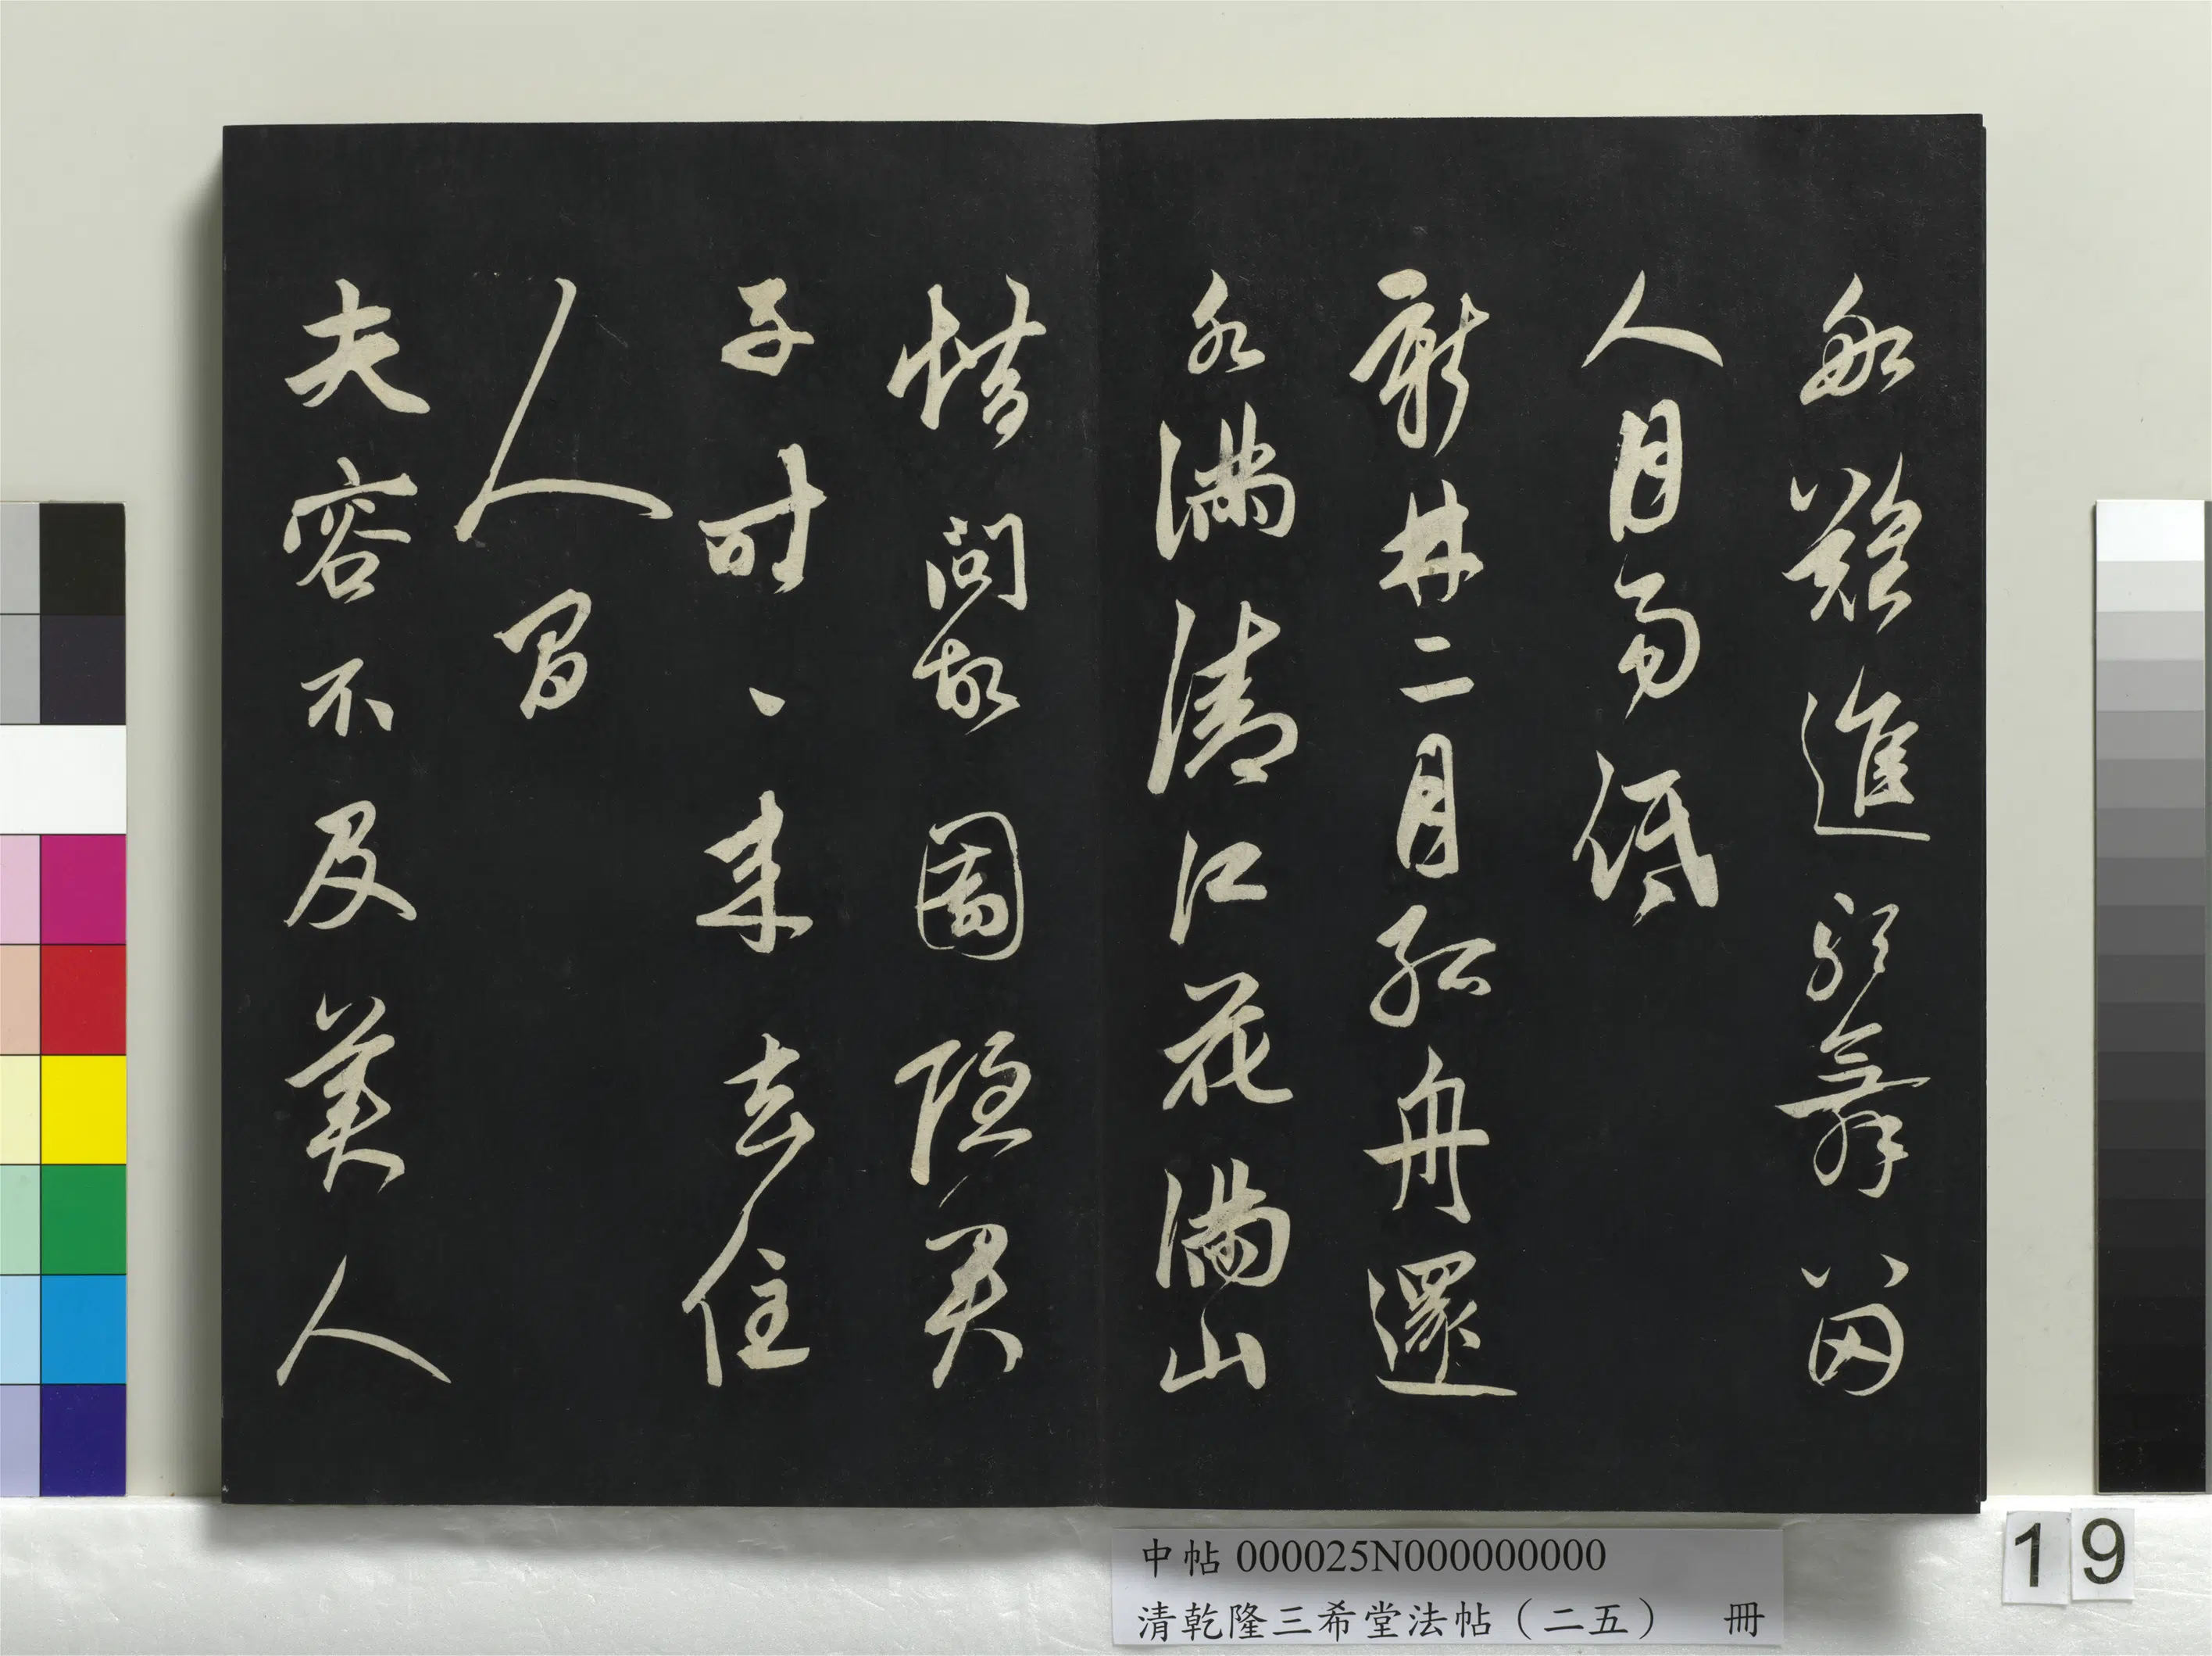 船難進歌舞留
人月易低
新林二月孤舟還
水滿清江花滿山
借問故園隱君
子時、來去住
人間
夫容不及美人
中帖 000025N000000000
清乾隆三希堂法帖（二五） 冊
19